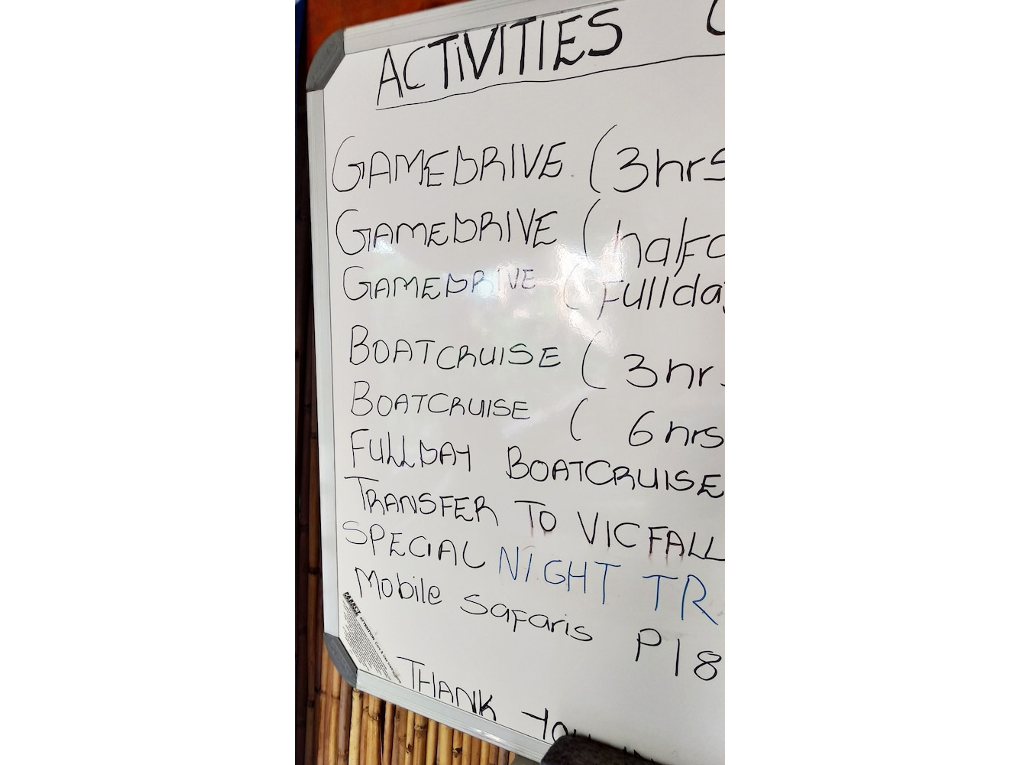 ACTIVITIES
GAMEDRIVE (3hrs
GAMEDRIVE (halfd
GAMEDRIVE (Fullday
BOATCRUISE (3hr
BOATCRUISE ( 6hrs
FULLDAY BOATCRUISE
TRANSFER TO VICFALL
SPECIAL NIGHT TR
Mobile Safaris P18
THANK You